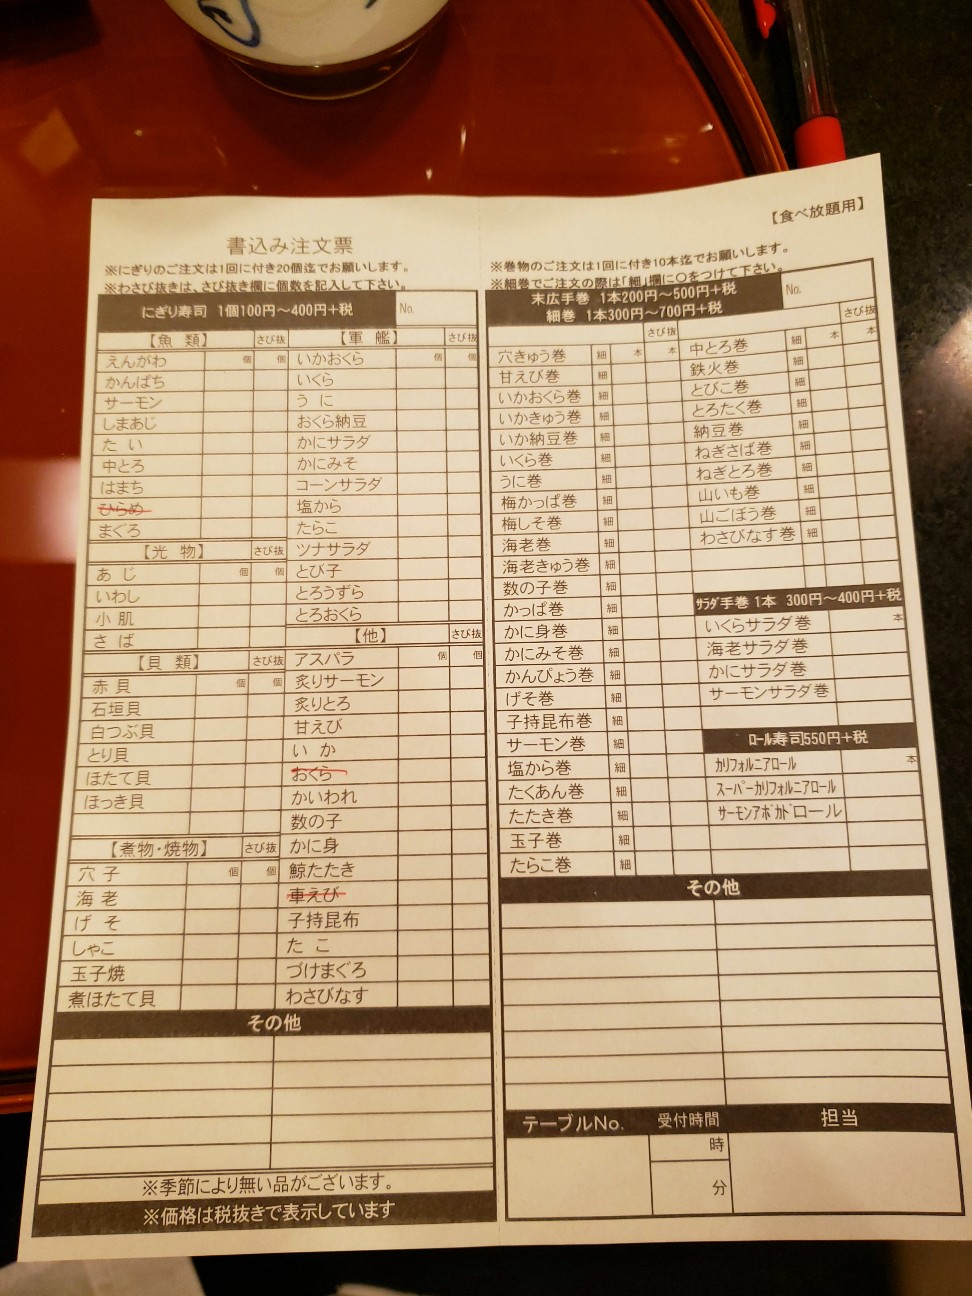 【食べ放題用】
書込み注文票
※にぎりのご注文は1回に付き20個迄でお願いします。
※わさび抜きは、さび抜き欄に個数を記入して下さい。
にぎり寿司 1個100円～400円+税 No.
【魚 類】 さび抜
えんがわ 個 個
かんぱち
サーモン
しまあじ
た い
中とろ
はまち
ひらめ
まぐろ
【光 物】 さび抜
あ じ 個 個
いわし
小 肌
さ ば
【貝 類】 さび抜
赤 貝 個 個
石垣貝
白つぶ貝
とり貝
ほたて貝
ほっき貝
【煮物・焼物】 さび抜
穴 子 個 個
海 老
げ そ
しゃこ
玉子焼
煮ほたて貝
【軍 艦】 さび抜
いかおくら 個 個
いくら
う に
おくら納豆
かにサラダ
かにみそ
コーンサラダ
塩から
たらこ
ツナサラダ
とび子
とろうずら
とろおくら
【他】 さび抜
アスパラ 個 個
炙りサーモン
炙りとろ
甘えび
い か
おくら
かいわれ
数の子
かに身
鯨たたき
車えび
子持昆布
た こ
づけまぐろ
わさびなす
その他
※季節により無い品がございます。
※価格は税抜きで表示しています
※巻物のご注文は1回に付き10本迄でお願いします。
※細巻でご注文の際は「細」欄に○をつけて下さい。
末広手巻 1本200円～500円+税
細巻 1本300円～700円+税 No.
さび抜
穴きゅう巻 細 本 本
甘えび巻 細
いかおくら巻 細
いかきゅう巻 細
いか納豆巻 細
いくら巻 細
うに巻 細
梅かっぱ巻 細
梅しそ巻 細
海老巻 細
海老きゅう巻 細
数の子巻 細
かっぱ巻 細
かに身巻 細
かにみそ巻 細
かんぴょう巻 細
げそ巻 細
子持昆布巻 細
サーモン巻 細
塩から巻 細
たくあん巻 細
たたき巻 細
玉子巻 細
たらこ巻 細
さび抜
中とろ巻 細 本 本
鉄火巻 細
とびこ巻 細
とろたく巻 細
納豆巻 細
ねぎさば巻 細
ねぎとろ巻 細
山いも巻 細
山ごぼう巻 細
わさびなす巻 細
サラダ手巻 1本 300円～400円+税
いくらサラダ巻 本
海老サラダ巻
かにサラダ巻
サーモンサラダ巻
ロール寿司550円+税
カリフォルニアロール 本
スーパーカリフォルニアロール
サーモンアボカドロール
その他
テーブルNo. 受付時間 担当
時
分